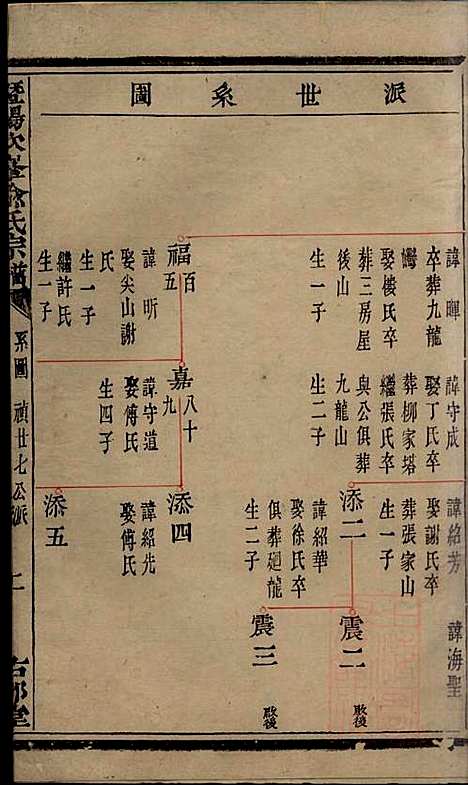 派世系圖
諱暉
卒葬九龍
娶樓氏卒
葬三房屋
後山
生一子
福百五
諱昕
娶尖山謝
氏
生一子
繼許氏
生一子
諱守成
娶丁氏卒
葬柳家塔
繼張氏卒
與公俱葬
九龍山
生二子
嘉八十九
諱守道
娶傅氏
生四子
諱紹芳
娶謝氏卒
葬張家山
生一子
添二
諱紹華
娶徐氏卒
俱葬廻龍
生二子
添四
諱紹先
娶傅氏
添五
諱海聖
震二
震三
暨陽次峯俞氏宗譜
系圖 禎廿七公派 二